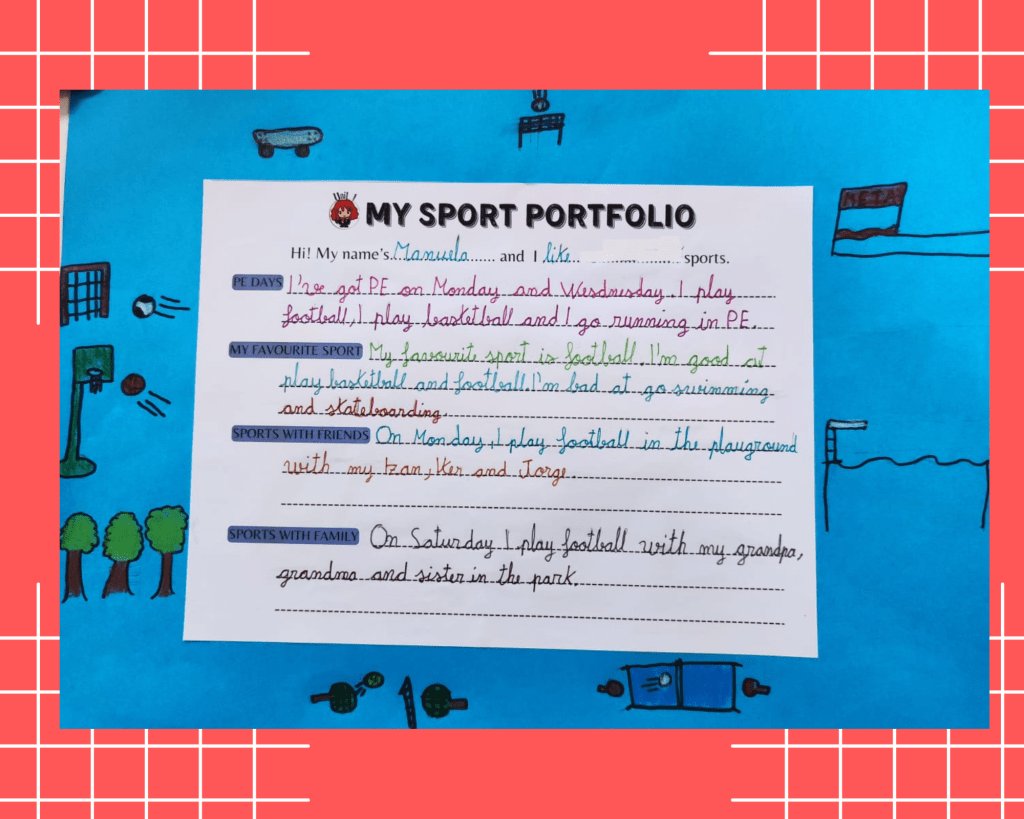 Unit 1
MY SPORT PORTFOLIO
Hi! My name's Manuela...... and I like.. ................ sports.
PE DAYS I've got PE on Monday and Wesdnesday. I play
football, I play basketball and I go running in PE.
MY FAVOURITE SPORT My favourite sport is football. I'm good at
play basketball and football. I'm bad at go swimming
and skateboarding.
SPORTS WITH FRIENDS On Monday, I play football in the playground
with my Izan, Iker and Jorge.
SPORTS WITH FAMILY On Saturday I play football with my grandpa,
grandma and sister in the park.
META